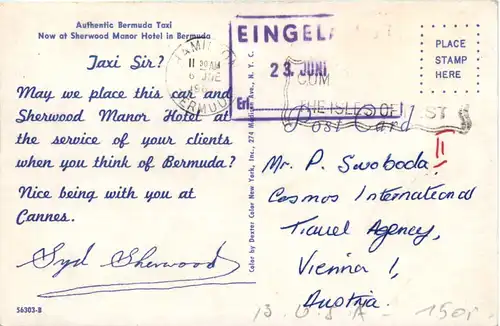 Authentic Bermuda Taxi
Now at Sherwood Manor Hotel in Bermuda
Taxi Sir?
May we place this car and
Sherwood Manor Hotel at
the service of your clients
when you think of Bermuda?
Nice being with you at
Cannes.
Syd Sherwood
56303-B
Color by Dexter Color New York, Inc., 274 Madison Ave., N. Y. C.
HAMILTON
11 30 AM
6 JNE
BERMUDA
EINGEL
23. JUNI
Erl.
COM
THE ISLES OF
ST
Post Card
PLACE
STAMP
HERE
Mr. P. Swoboda!!
Cosmos International
Travel Agency,
Vienna 1,
Austria.